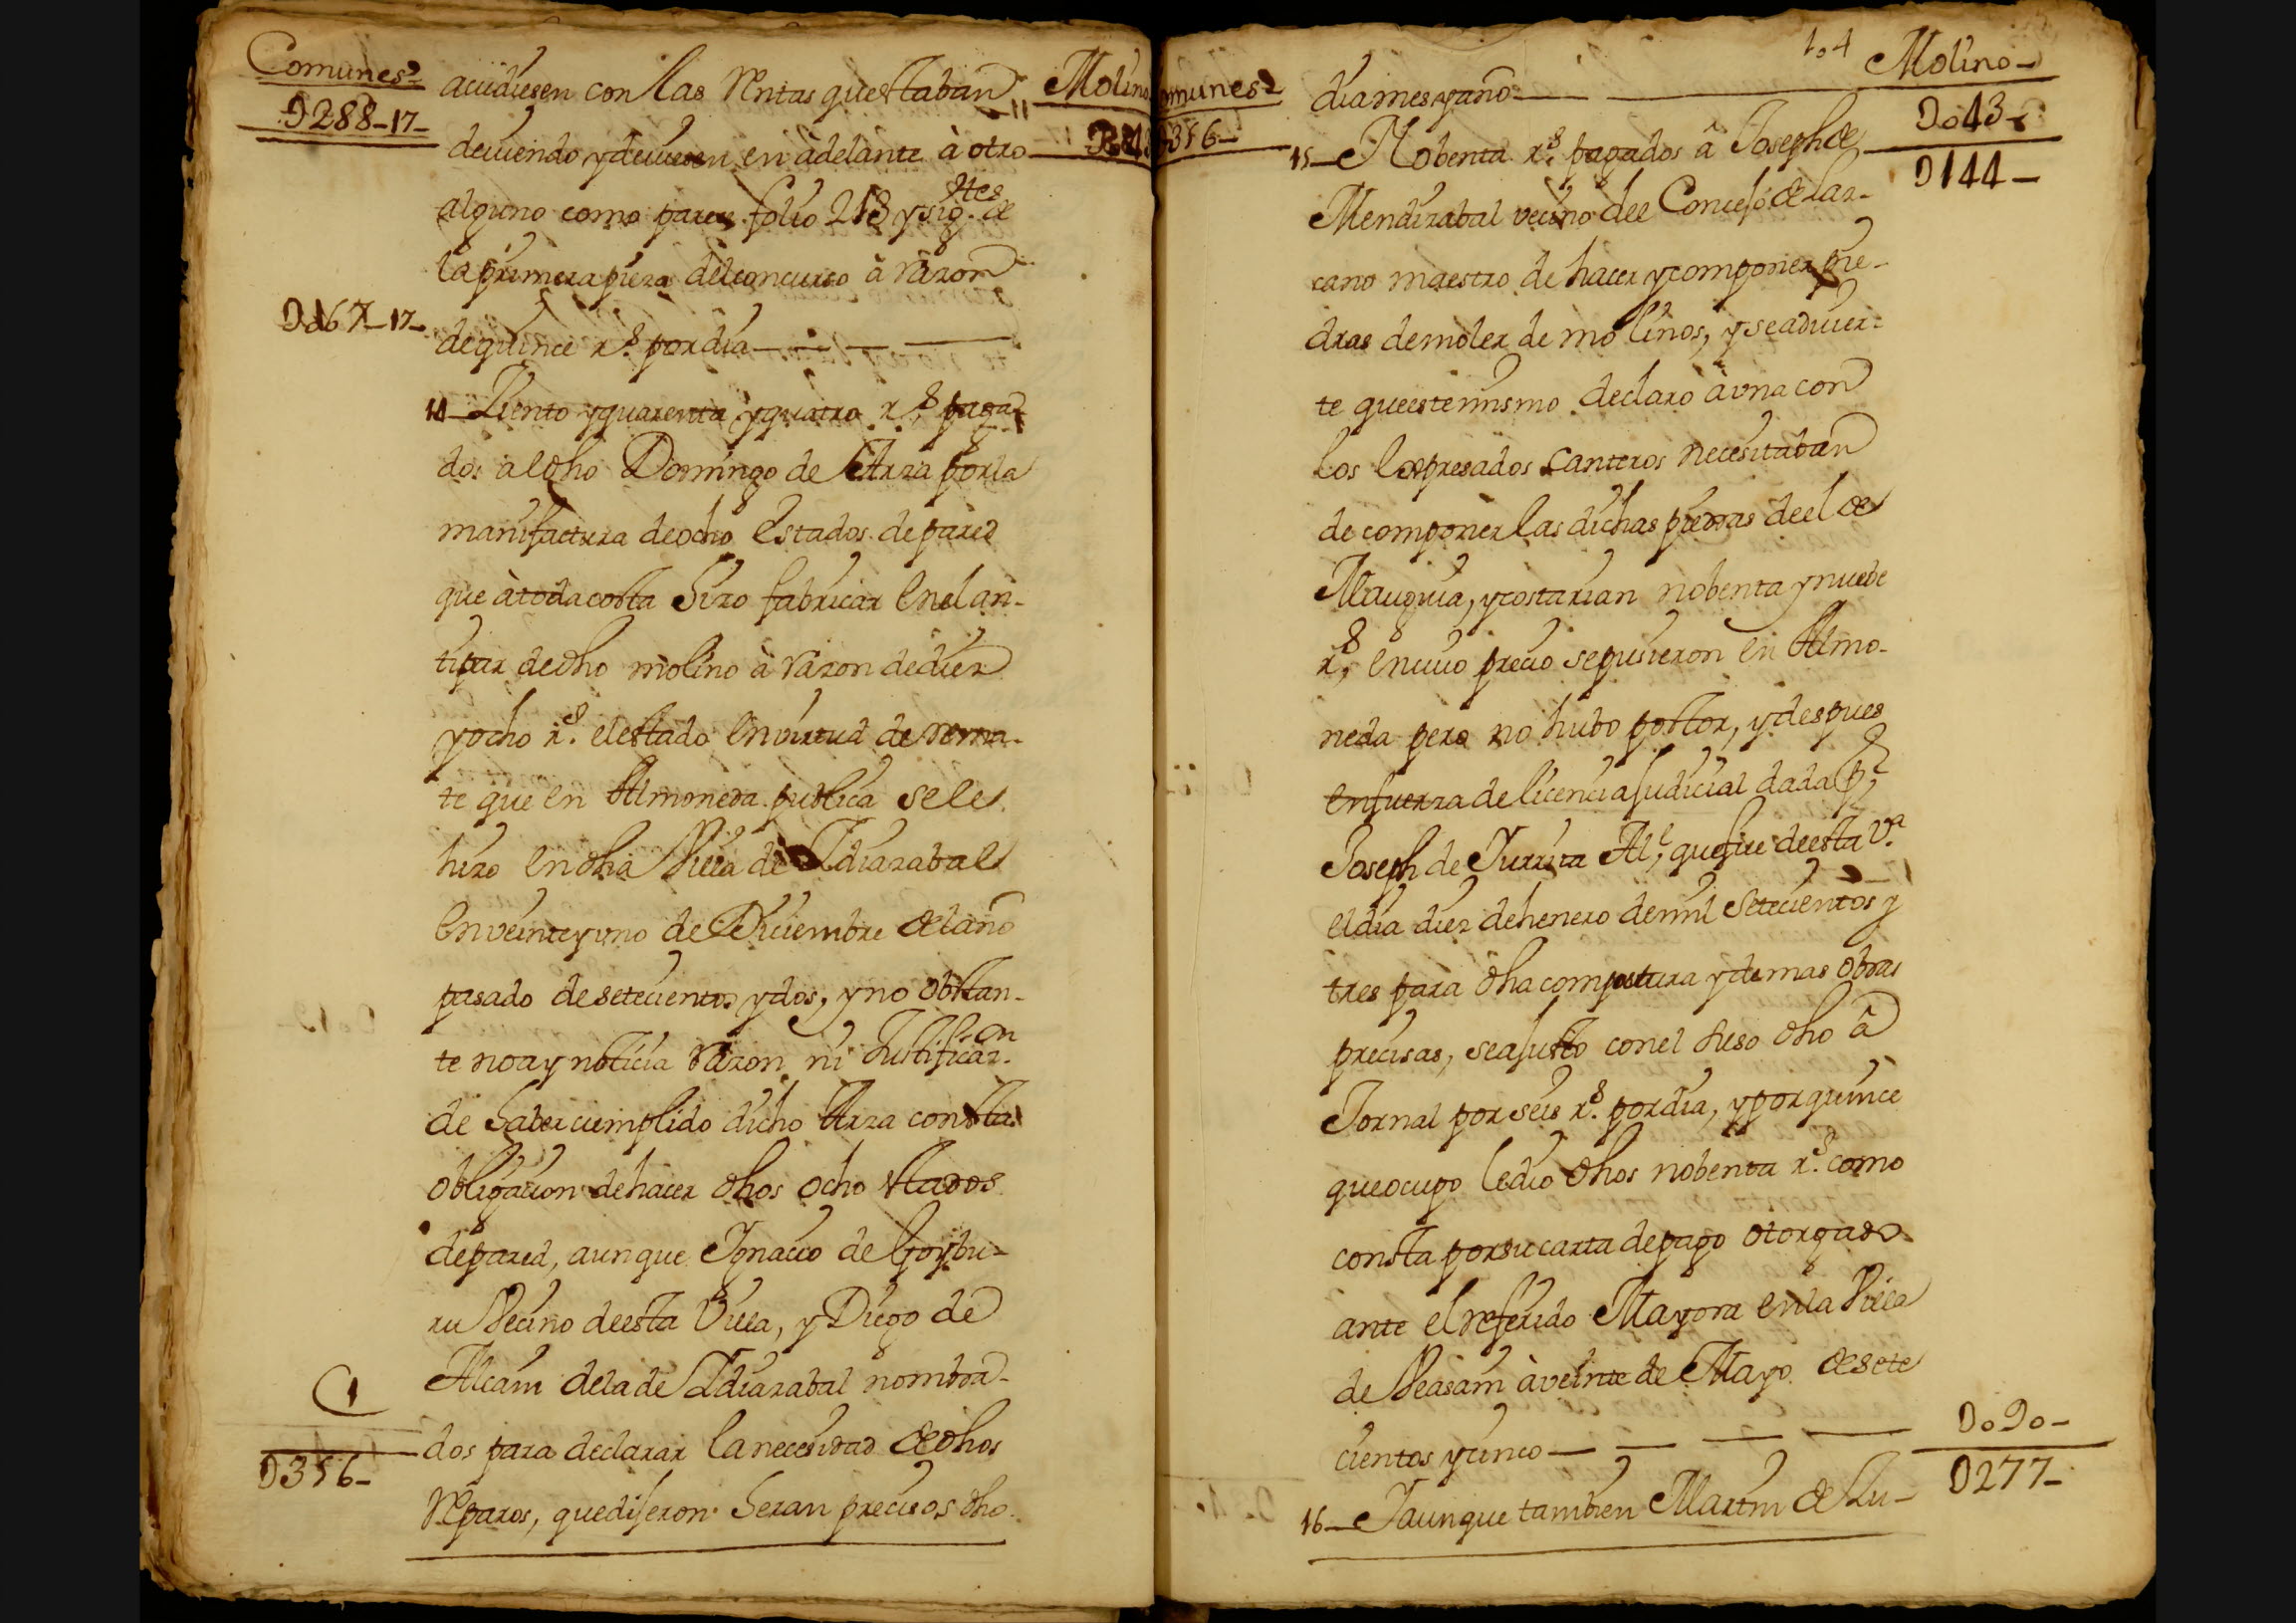 Comunes
D288-17-
acudiesen con las Rentas questaban
deuiendo y deuiesen en adelante à otro
alguno como parece folio 218 y sig.tes de
la primera pieza del concurso à razon
de quince r.s por dia
D067-17-
Molino
14 Ziento y quarenta y quatro r.s paga
dos al dho Domingo de Arza por la
manifactura de ocho estados de pared
que à toda costa hizo fabricar en el an-
tipar de dho molino à razon de diez
y ocho r.s el estado en virtud de rema-
te que en Almoneda publica se le
hizo en dha Villa de Idiazabal
en veinte y uno de Diciembre del año
pasado de setecientos y dos, y no obstan-
te no ay noticia razon ni Justificaz.on
de haber cumplido dicho Arza con sta
obligacion de hacer dhos ocho stados
de pared, aunque Ignacio de Goybu-
ru Vecino de esta Villa, y Diego de
Alcain de la de Idiazabal nombra-
dos para declarar la necesidad de dhos
Reparos, que dijeron seran precisos dho
D356-
104
omunes
356-
Molino-
D043-
D144-
dia mes y año
15 Nobenta r.s pagados â Joseph de
Mendizabal vecino del Concejo de Laz-
cano maestro de hacer y componer pie-
dras de moler de molinos, y se aduier-
te que este mismo declaro a una con
los expresados canteros necesitaban
de componer las dichas piedras de el de
Mauguia, y costarian nobenta y nuebe
r.s, en cuio precio se pusieron en Almo-
neda pero no hubo postor, y despues
en fuerza de licencia judicial dada p.r
Joseph de Iurrita Al.e que fue de esta V.a
el dia diez de henero de mil setecientos y
tres para dha compostura y demas obras
precisas, se ajusto con el suso dho â
Jornal por seis r.s por dia, y por quince
que ocupo le dio dhos nobenta r.s como
consta por su carta de pago otorgado
ante el referido Mayora en la Villa
de Beasain à veinte de Mayo de sete
cientos y cinco
D090-
D277-
16 Y aunque tambien Martin de Zu-